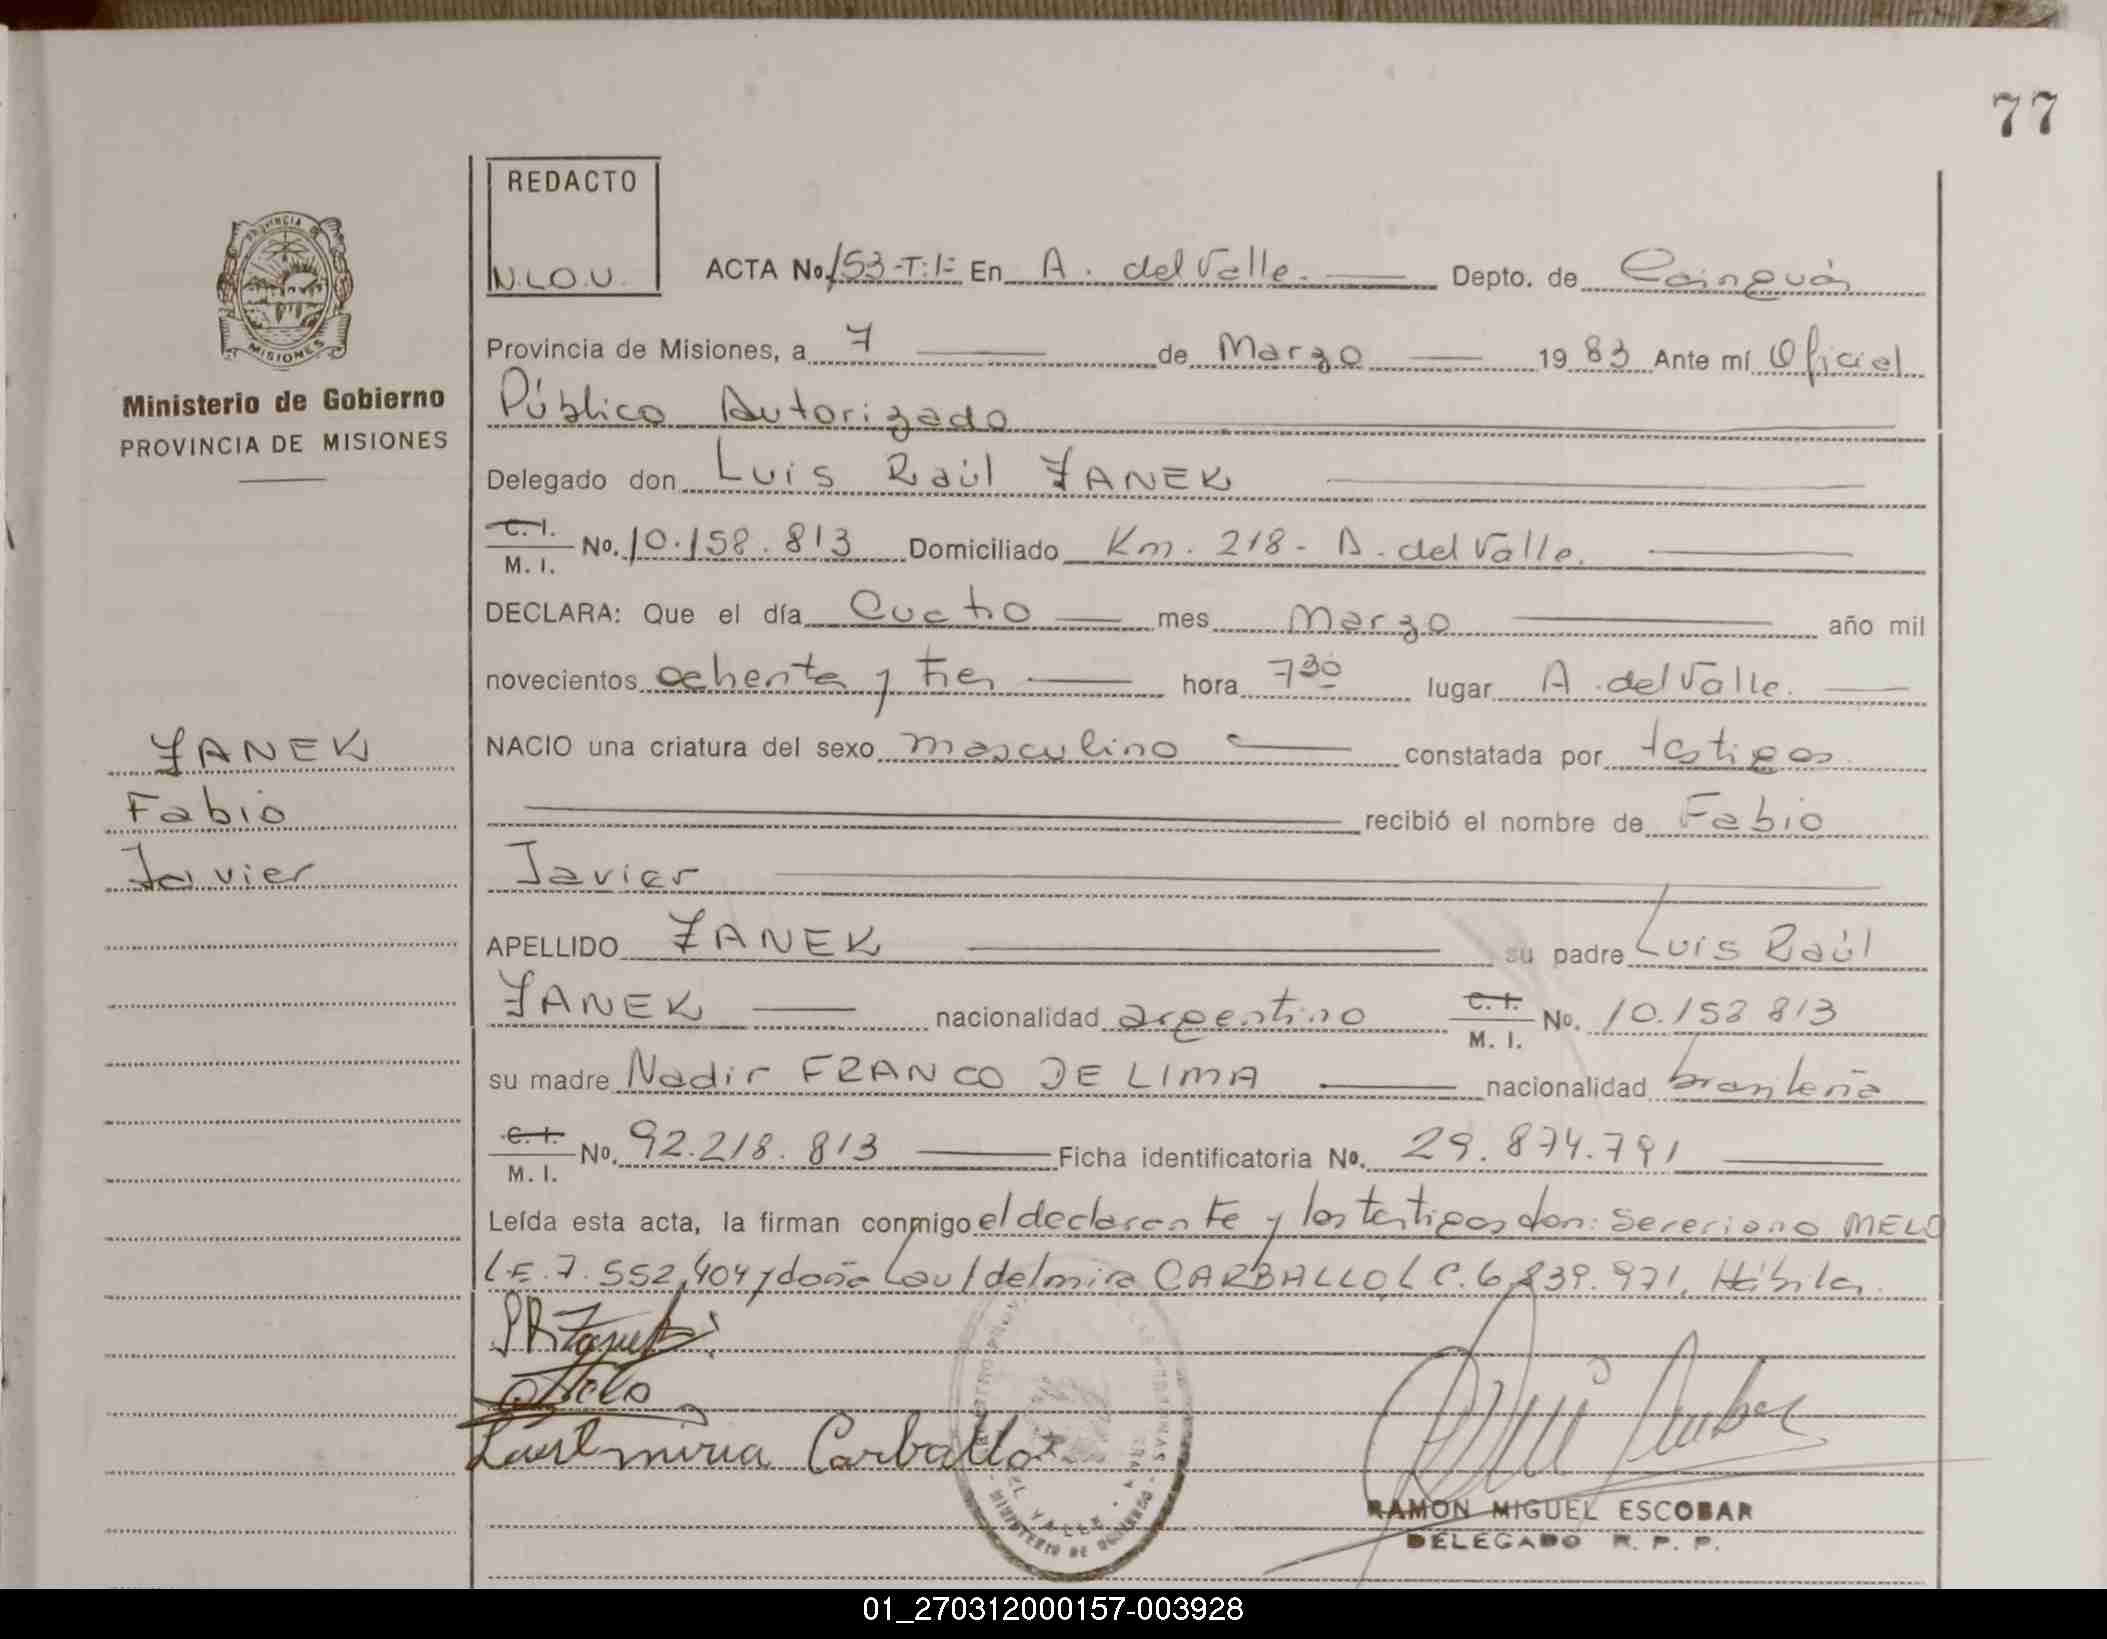 77
REDACTO
N.L.O.U.
ACTA No. 153-T:1= En A. del Valle. Depto. de Cainguás
Provincia de Misiones, a 7 de Marzo 1983 Ante mí Oficial
Público Autorizado
Delegado don Luis Raúl ZANEK
C. I. M. I. No. 10.158.813 Domiciliado Km. 218 - A. del Valle.
DECLARA: Que el día Cuatro mes Marzo año mil
novecientos ochenta y tres hora 7 30 lugar A. del Valle.
NACIO una criatura del sexo masculino constatada por testigos
recibió el nombre de Fabio
Javier
APELLIDO ZANEK su padre Luis Raúl
ZANEK nacionalidad argentino C. I. M. I. No. 10.158 813
su madre Nadir FRANCO DE LIMA nacionalidad brasileña
C. I. M. I. No. 92.218.813 Ficha identificatoria No. 29.874.791
Leída esta acta, la firman conmigo el declarante y los testigos don: Sereriano MELO
L.E. 7.552.404 y doña Laudelmira CARBALLO, L.C. 6.839.971, Hábiles
Carballo
RAMON MIGUEL ESCOBAR
DELEGADO R. P. P.
PROVINCIA DE
MISIONES
Ministerio de Gobierno
PROVINCIA DE MISIONES
ZANEK
Fabio
Javier
MINISTERIO DE GOBIERNO
01_270312000157-003928